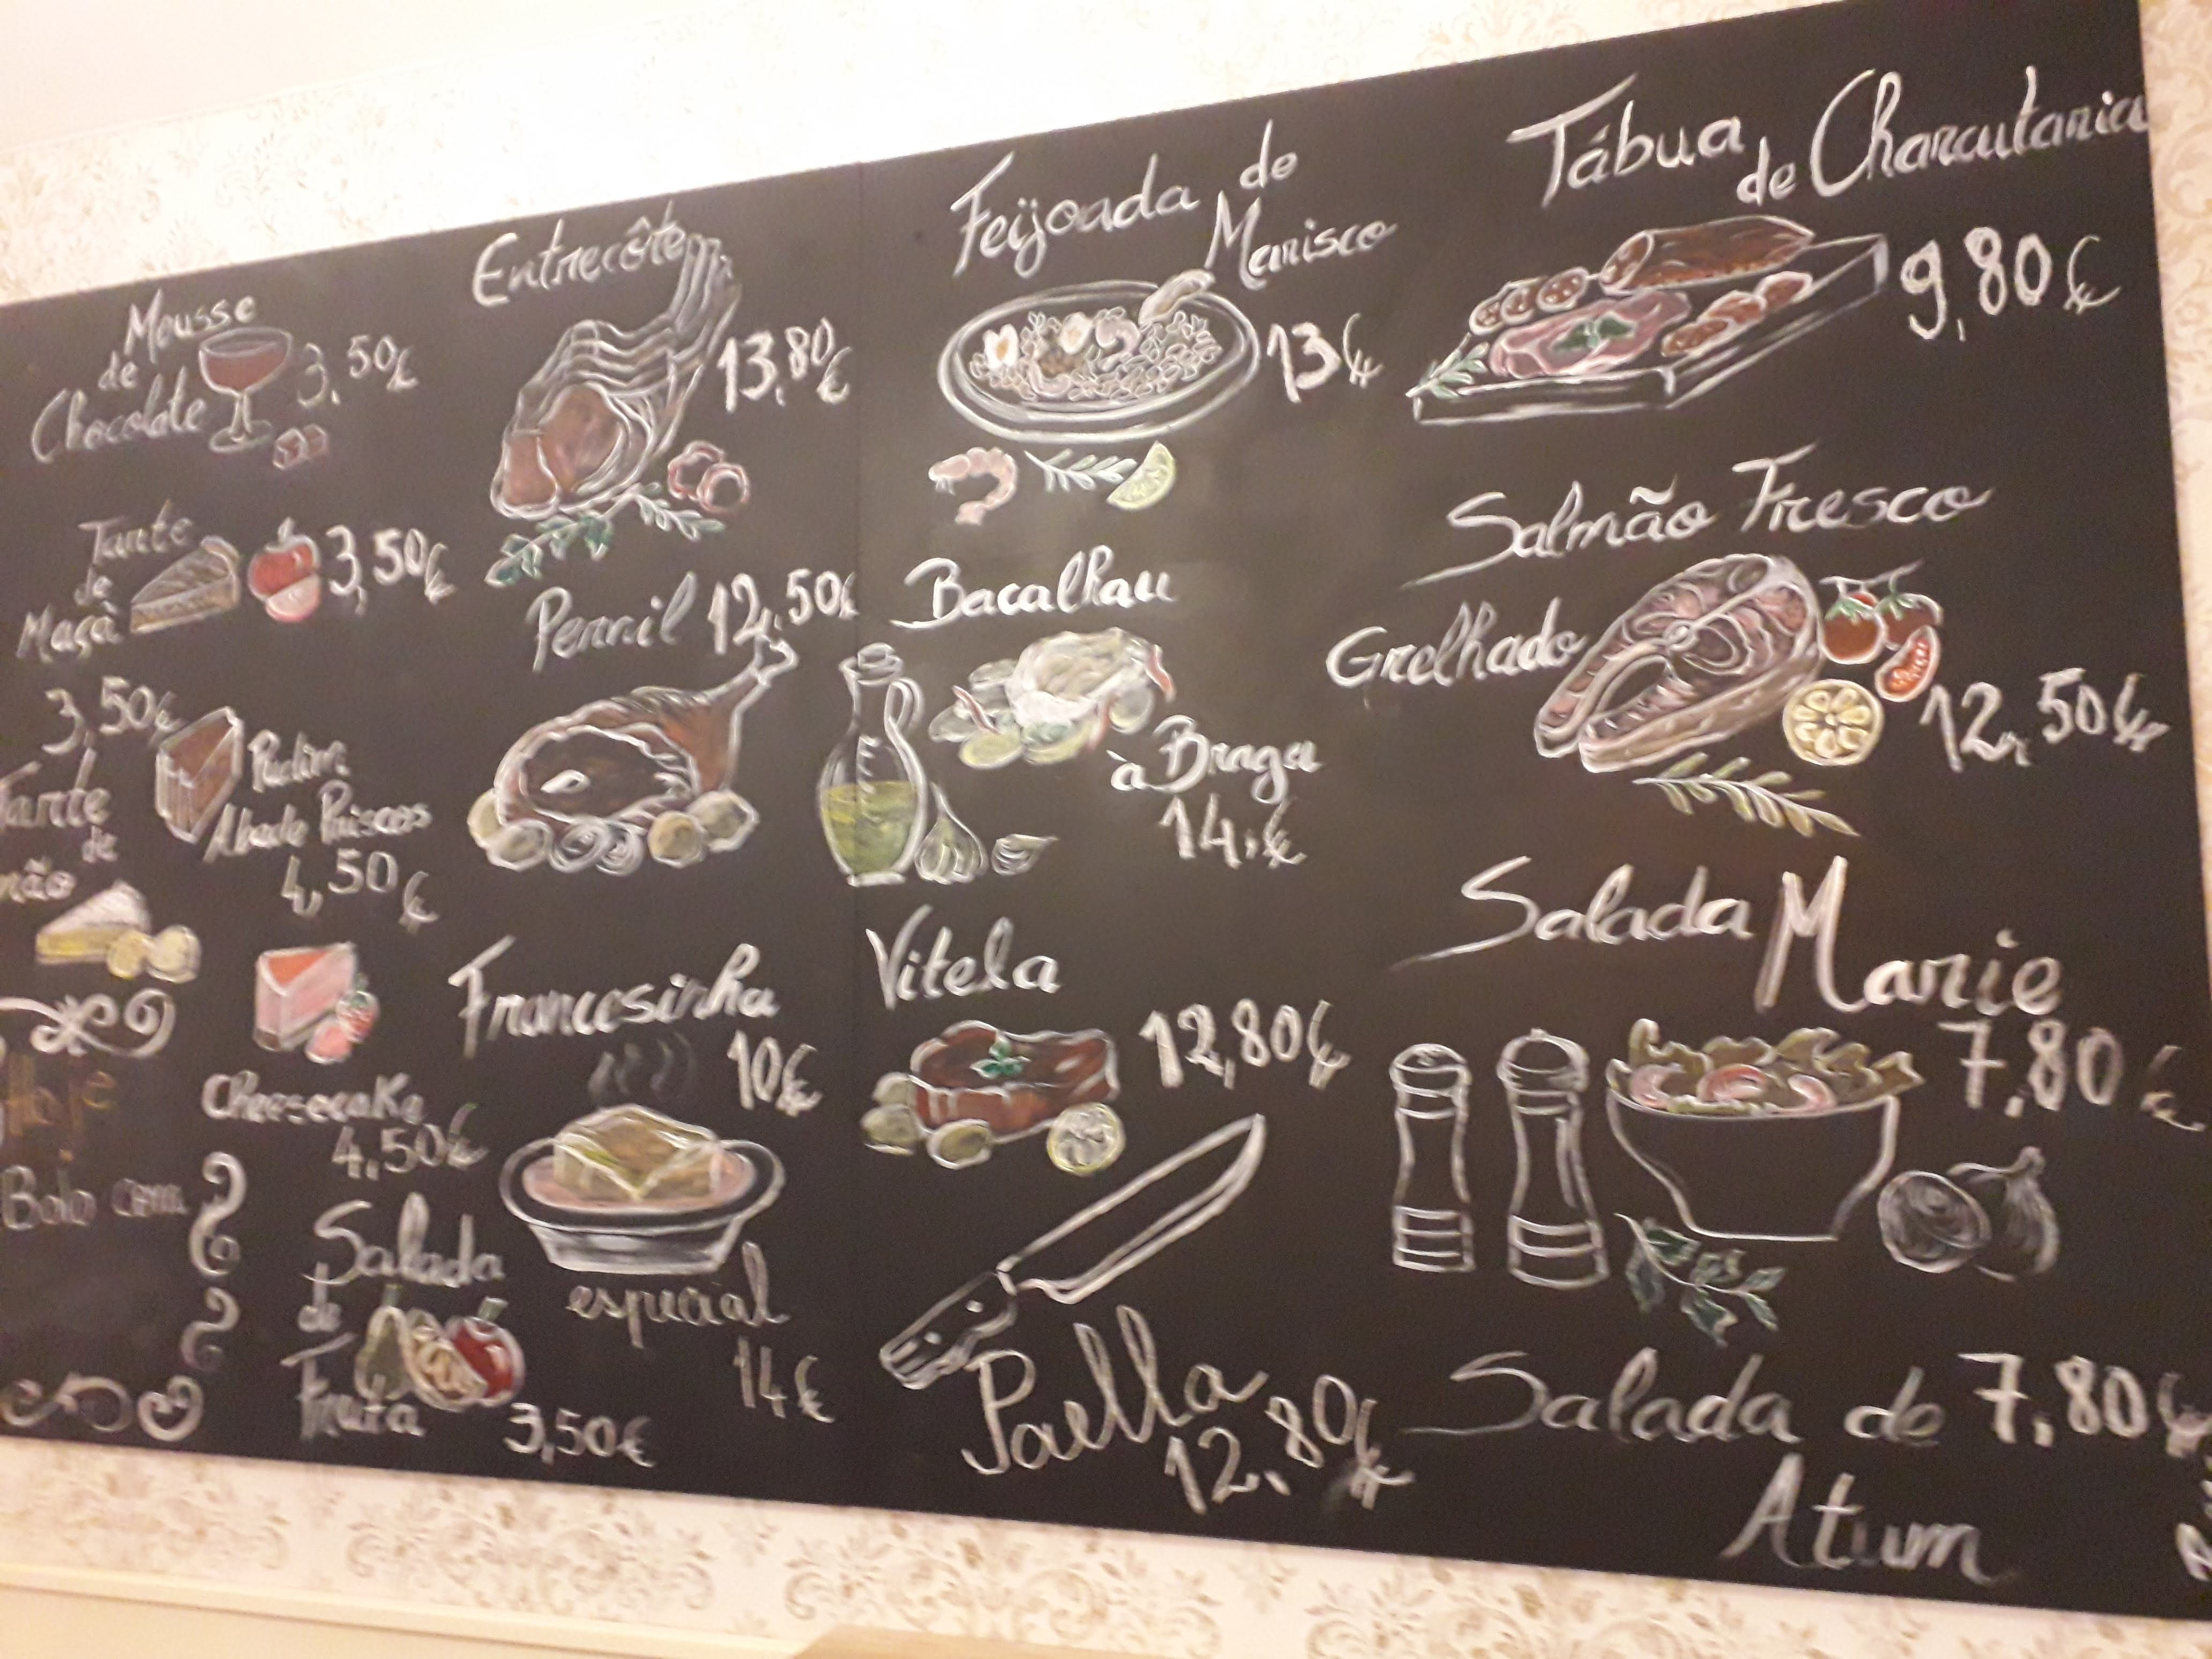 Mousse
de
Chocolate
3,50€
Tarte
de
Maçã
3,50€
3,50€
Tarte
de
Pudim
Abade Priscos
4,50€
Cheesecake
4,50€
Hoje
Bolo com
Salada
de
Fruta
3,50€
Entrecôte
13,80€
Pernil 12,50€
Francesinha
10€
especial
14€
Feijoada de
Marisco
13€
Bacalhau
à Braga
14,€
Vitela
12,80€
Paella
12,80€
Tábua
de Charcutaria
9,80€
Salmão Fresco
Grelhado
12,50€
Salada Marie
7,80€
Salada de 7,80€
Atum